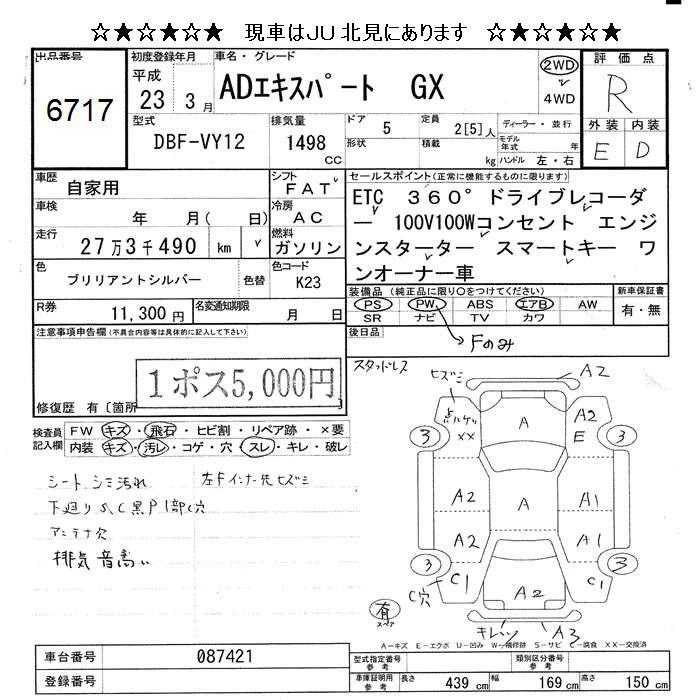 ☆★☆★☆★☆ 現車はJU北見にあります ☆★☆★☆★☆
出品番号
6717
初度登録年月
平成
23 3月
車名・グレード
ADエキスパート GX
2WD
4WD
評価点
R
外装 内装
E D
型式
DBF-VY12
排気量
1498
CC
ドア
5
形状
定員
2[5]人
積載
kg
ディーラー・並行
モデル
年式 年
ハンドル 左・右
車歴
自家用
シフト
FAT
車検
年 月( 日)
冷房
AC
走行
27万3千490 km
燃料
ガソリン
色
ブリリアントシルバー
色替
色コード
K23
R券
11,300円
名変通知期限
月 日
セールスポイント(正常に機能するものに限ります)
ETC 360°ドライブレコーダ
ー 100V100Wコンセント エンジ
ンスターター スマートキー ワ
ンオーナー車
装備品 (純正品に限り○をつけてください)
PS PW ABS エアB AW
SR ナビ TV カワ
新車保証書
有・無
後日品
Fのみ
注意事項申告欄(不具合内容等は具体的に記入して下さい)
1ポス5,000円
修復歴 有〔箇所
検査員
記入欄
FW キズ・飛石・ヒビ割・リペア跡・×要
内装 キズ・汚レ・コゲ・穴・スレ・キレ・破レ
シート シミ汚れ 左Fインナー先ヒズミ
下廻りS,C黒P1部C穴
アンテナ欠
排気音高い
スタッドレス
ヒズミ
A2
点ハゲ
××
A
A2
E
3
3
A2
A
A1
A2
A1
3
3
C1
C穴
A2
C1
有
スペア
キレ
A3
A-キズ E-エクボ U-凹み W-補修跡 S-サビ C-腐食 XX-交換済
車台番号
087421
登録番号
型式指定番号
参考
類別区分番号
参考
車庫証明用
参考
長さ 439 cm 幅 169 cm 高さ 150 cm